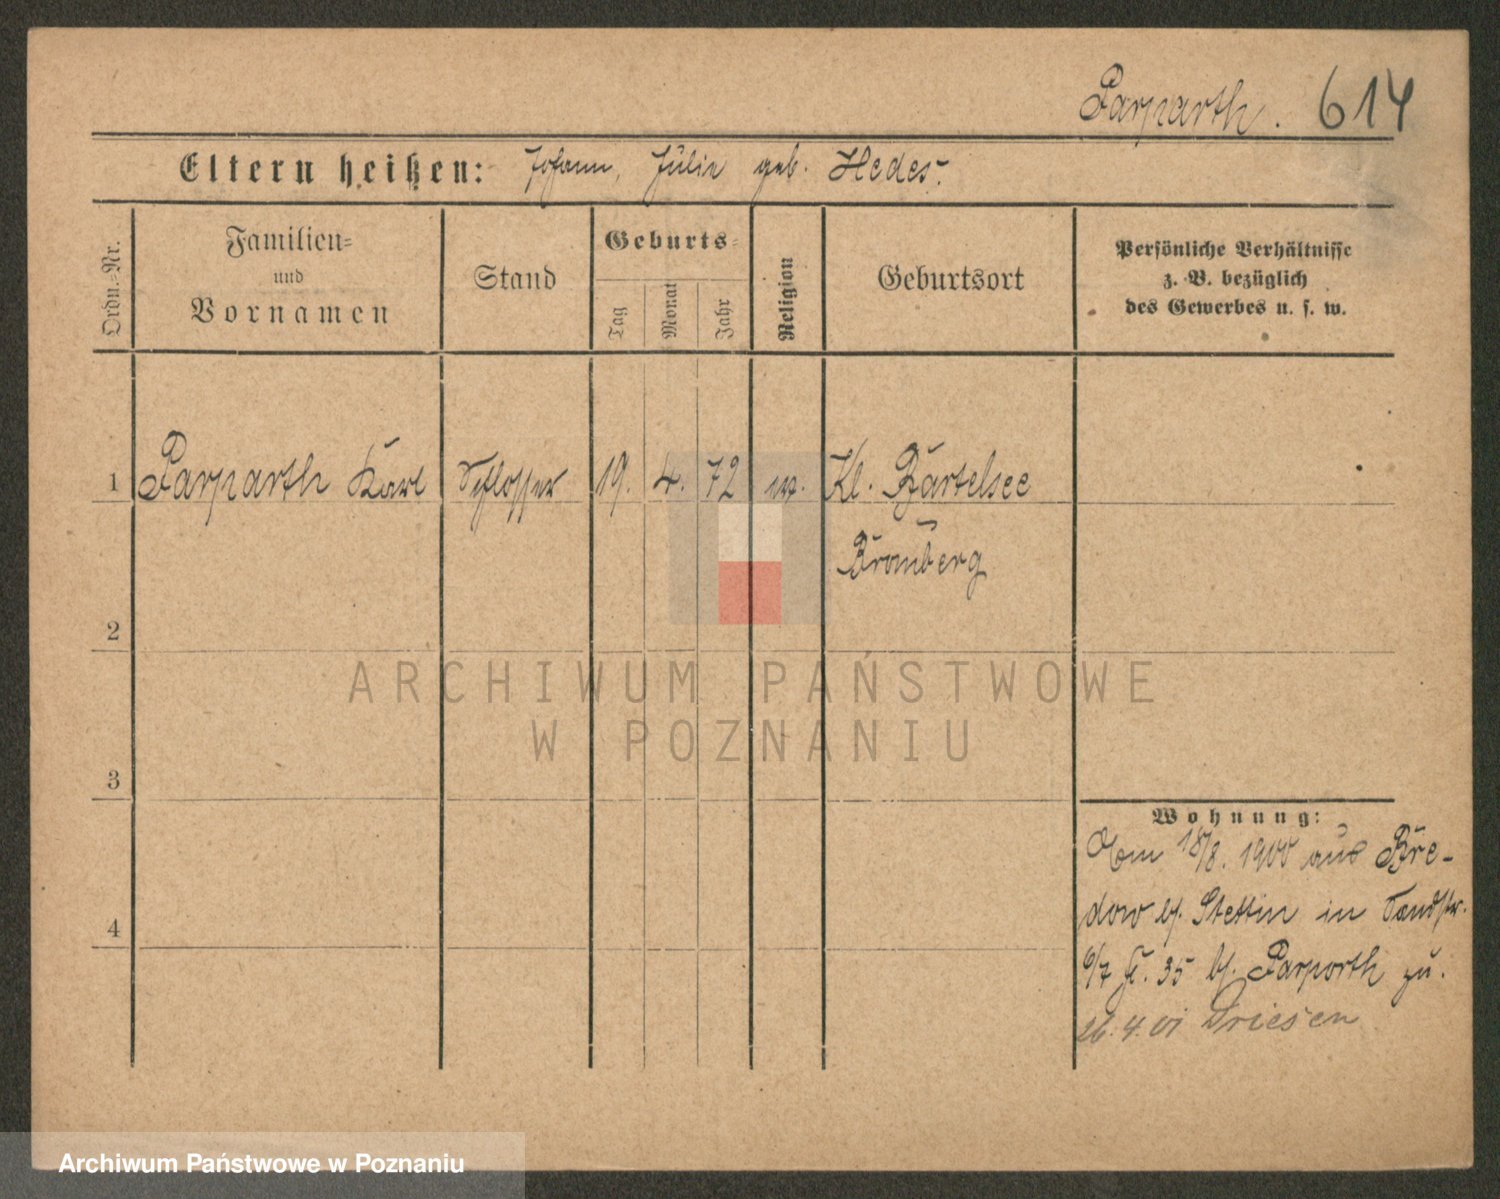 Parparth. 614
Eltern heißen: Johann, Julie geb. Hedes.
Ordn.-Nr.
Familien-
und
Vornamen
Stand
Geburts-
Tag
Monat
Jahr
Religion
Geburtsort
Persönliche Verhältnisse
z. B. bezüglich
des Gewerbes u. s. w.
1 Parparth Karl Schlosser 19. 4. 72 Kl. Bartelsee
Bromberg
2
3
4
Wohnung:
18/8. 1900 aus Bre-
dow b/. Stettin in
6/7 35 b/. Parparth zu.
26.4.01 Driesen
ARCHIWUM PAŃSTWOWE
W POZNANIU
Archiwum Państwowe w Poznaniu